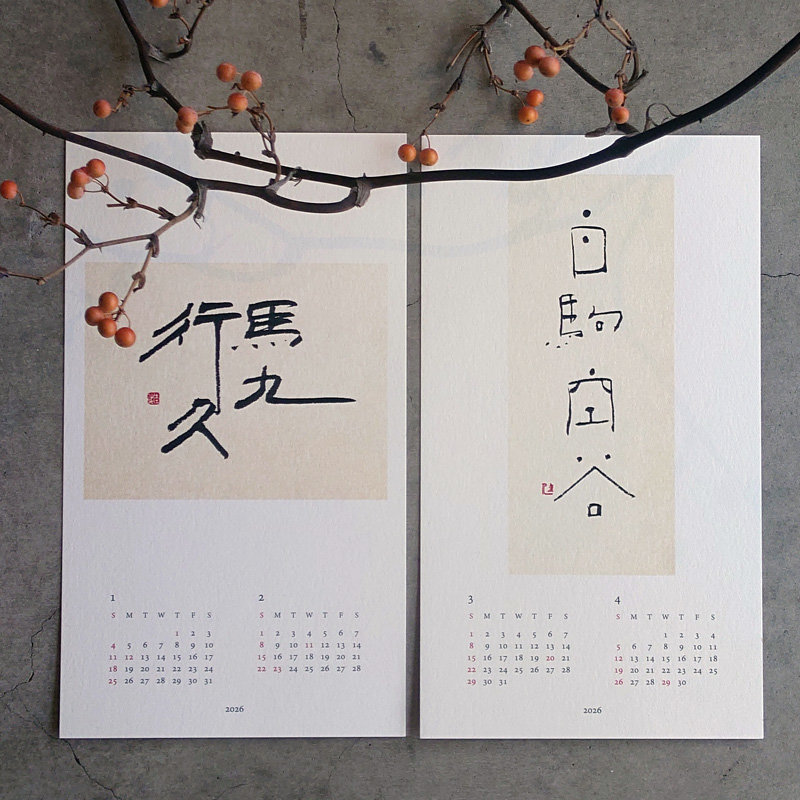 馬九
行久
1
S M T W T F S
1 2 3
4 5 6 7 8 9 10
11 12 13 14 15 16 17
18 19 20 21 22 23 24
25 26 27 28 29 30 31
2
S M T W T F S
1 2 3 4 5 6 7
8 9 10 11 12 13 14
15 16 17 18 19 20 21
22 23 24 25 26 27 28
2026
白
駒
空
谷
3
S M T W T F S
1 2 3 4 5 6 7
8 9 10 11 12 13 14
15 16 17 18 19 20 21
22 23 24 25 26 27 28
29 30 31
4
S M T W T F S
1 2 3 4
5 6 7 8 9 10 11
12 13 14 15 16 17 18
19 20 21 22 23 24 25
26 27 28 29 30
2026